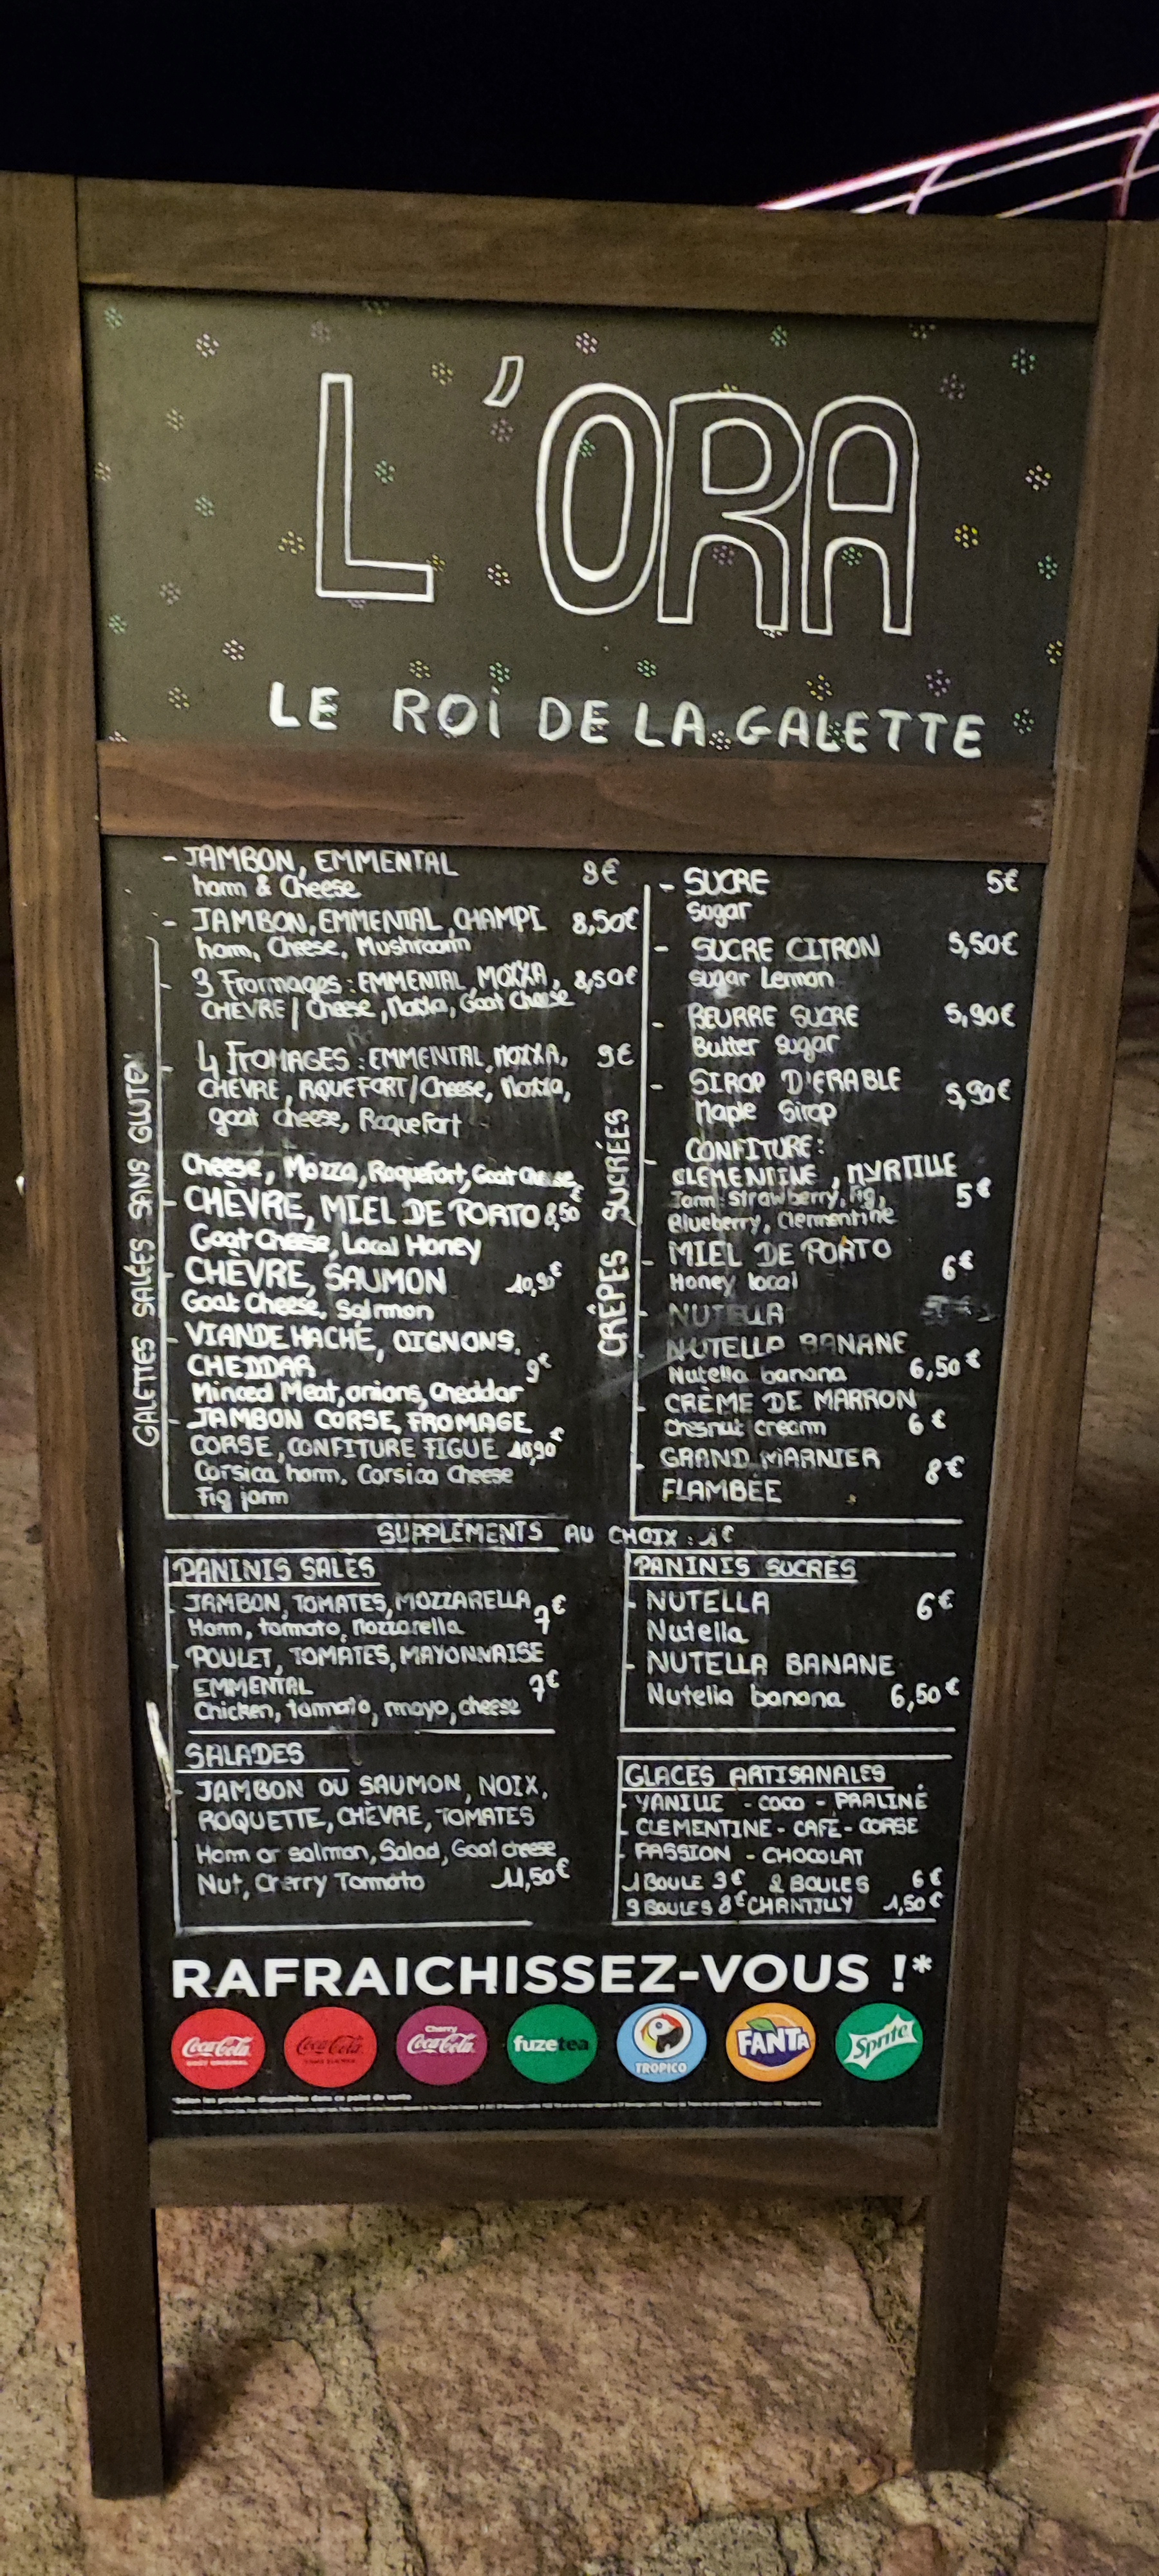 L'ORA
LE ROI DE LA GALETTE
GALETTES SALÉES SANS GLUTEN
- JAMBON, EMMENTAL 8€
ham & Cheese
- JAMBON, EMMENTAL, CHAMPI 8,50€
ham, Cheese, Mushroom
- 3 Fromages : EMMENTAL, MOZZA, 8,50€
CHEVRE / Cheese, Mozza, Goat Cheese
- 4 FROMAGES : EMMENTAL, MOZZA, 9€
CHEVRE, ROQUEFORT / Cheese, Mozza,
goat cheese, Roquefort
Cheese, Mozza, Roquefort, Goat Cheese,
- CHÈVRE, MIEL DE PORTO 8,50€
Goat Cheese, Local Honey
- CHÈVRE, SAUMON 10,90€
Goat Cheese, Salmon
- VIANDE HACHÉ, OIGNONS,
CHEDDAR 9€
Minced Meat, onions, Cheddar
- JAMBON CORSE, FROMAGE
CORSE, CONFITURE FIGUE 10,90€
Corsica ham, Corsica Cheese
Fig jam
CRÊPES SUCRÉES
- SUCRE 5€
Sugar
- SUCRE CITRON 5,50€
Sugar Lemon
- BEURRE SUCRE 5,90€
Butter sugar
- SIROP D'ERABLE 5,90€
Maple Sirop
- CONFITURE :
CLEMENTINE, MYRTILLE 5€
Jam: strawberry, Fig,
Blueberry, Clementine
- MIEL DE PORTO 6€
Honey local
- NUTELLA
- NUTELLA BANANE 6,50€
Nutella banana
- CRÈME DE MARRON 6€
Chesnut cream
- GRAND MARNIER 8€
FLAMBÉE
SUPPLÉMENTS AU CHOIX : 1€
PANINIS SALÉS
- JAMBON, TOMATES, MOZZARELLA 7€
Ham, tomato, Mozzarella
- POULET, TOMATES, MAYONNAISE
EMMENTAL 7€
Chicken, tomato, mayo, cheese
PANINIS SUCRÉS
- NUTELLA 6€
Nutella
- NUTELLA BANANE
Nutella banana 6,50€
SALADES
- JAMBON OU SAUMON, NOIX,
ROQUETTE, CHÈVRE, TOMATES
Ham or salmon, Salad, Goat cheese
Nut, Cherry Tomato 11,50€
GLACES ARTISANALES
- VANILLE - COCO - PRALINÉ
- CLEMENTINE - CAFÉ - CORSE
- PASSION - CHOCOLAT
1 BOULE 3€ 2 BOULES 6€
3 BOULES 8€ CHANTILLY 1,50€
RAFRAICHISSEZ-VOUS !*
Coca-Cola GOÛT ORIGINAL
Coca-Cola SANS SUCRES
Cherry Coca-Cola
fuzetea
TROPICO
FANTA
Sprite
*Selon les produits disponibles dans ce point de vente